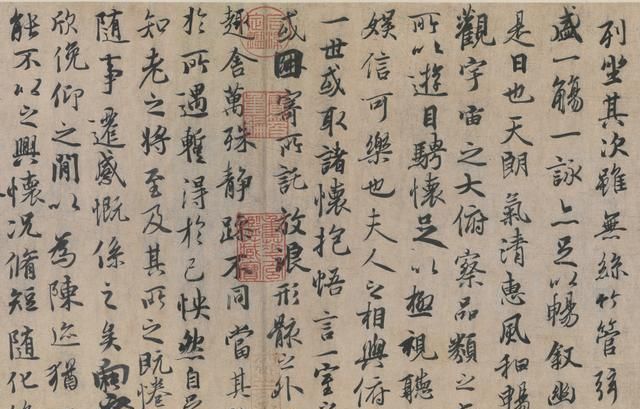 列坐其次雖無絲竹管弦
盛一觴一詠亦足以暢叙幽
是日也天朗氣清惠風和暢
觀宇宙之大俯察品類之
所以遊目騁懷足以極視聽
娛信可樂也夫人之相與俯
一世或取諸懷抱悟言一室
或因寄所託放浪形骸之外
趣舍萬殊靜躁不同當其
於所遇蹔得於己怏然自
知老之將至及其所之既惓
隨事遷感慨係之矣向
欣俛仰之閒以為陳迹猶
能不以之興懷況脩短隨化